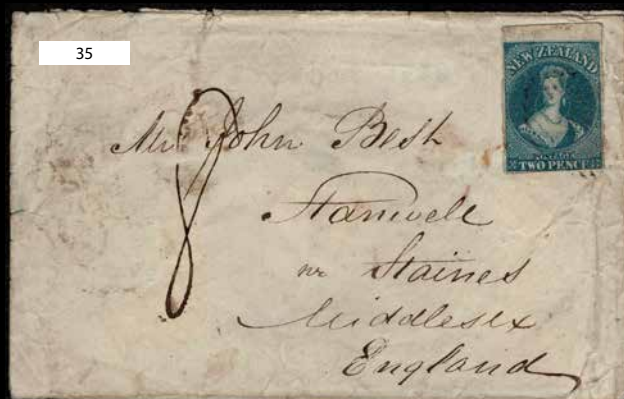 35
NEW ZEALAND
POSTAGE
TWO PENCE
8
Mr John Best
Stanwell
nr Staines
Middlesex
England